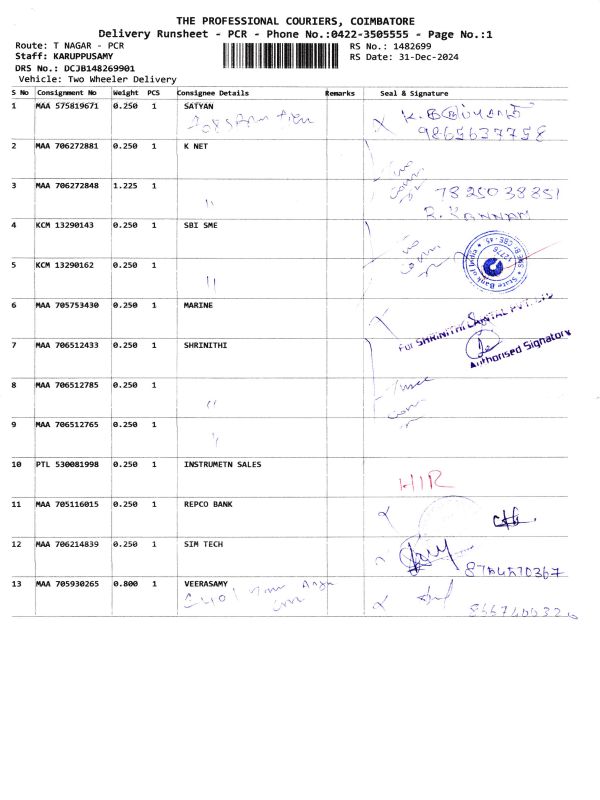 THE PROFESSIONAL COURIERS, COIMBATORE
Delivery Runsheet - PCR - Phone No.:0422-3505555 - Page No.:1
Route: T NAGAR - PCR RS No.: 1482699
Staff: KARUPPUSAMY RS Date: 31-Dec-2024
DRS No.: DCJB148269901
Vehicle: Two Wheeler Delivery
S No Consignment No Weight PCS Consignee Details Remarks Seal & Signature
1 MAA 575819671 0.250 1 SATYAN
9865637758
2 MAA 706272881 0.250 1 K NET
3 MAA 706272848 1.225 1 〃 7825038851
R. KANNAN
4 KCM 13290143 0.250 1 SBI SME
State Bank of India
5 KCM 13290162 0.250 1 〃
6 MAA 705753430 0.250 1 MARINE
For SHRINITHI CAPITAL PVT. LTD
7 MAA 706512433 0.250 1 SHRINITHI
Authorised Signatory
8 MAA 706512785 0.250 1 〃
9 MAA 706512765 0.250 1 〃
10 PTL 530081998 0.250 1 INSTRUMETN SALES
11 MAA 705116015 0.250 1 REPCO BANK
12 MAA 706214839 0.250 1 SIM TECH
13 MAA 705930265 0.800 1 VEERASAMY